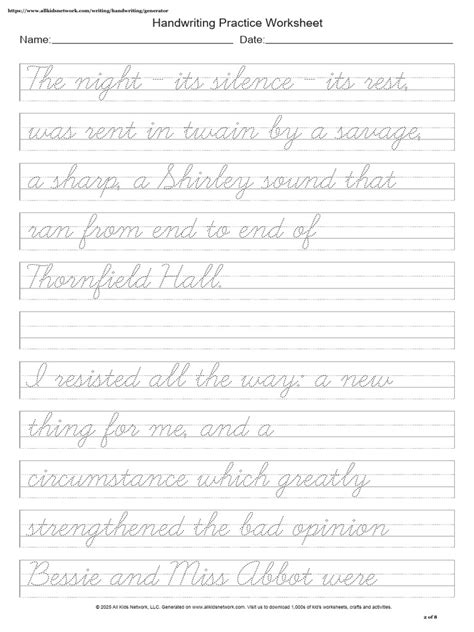 https://www.allkidsnetwork.com/writing/handwriting/generator
Handwriting Practice Worksheet
Name: Date:
The night - its silence - its rest,
was rent in twain by a savage,
a sharp, a Shirley sound that
ran from end to end of
Thornfield Hall.
I resisted all the way: a new
thing for me, and a
circumstance which greatly
strengthened the bad opinion
Bessie and Miss Abbot were
© 2025 All Kids Network, LLC. Generated on www.allkidsnetwork.com. Visit us to download 1,000s of kid's worksheets, crafts and activities.
2 of 8